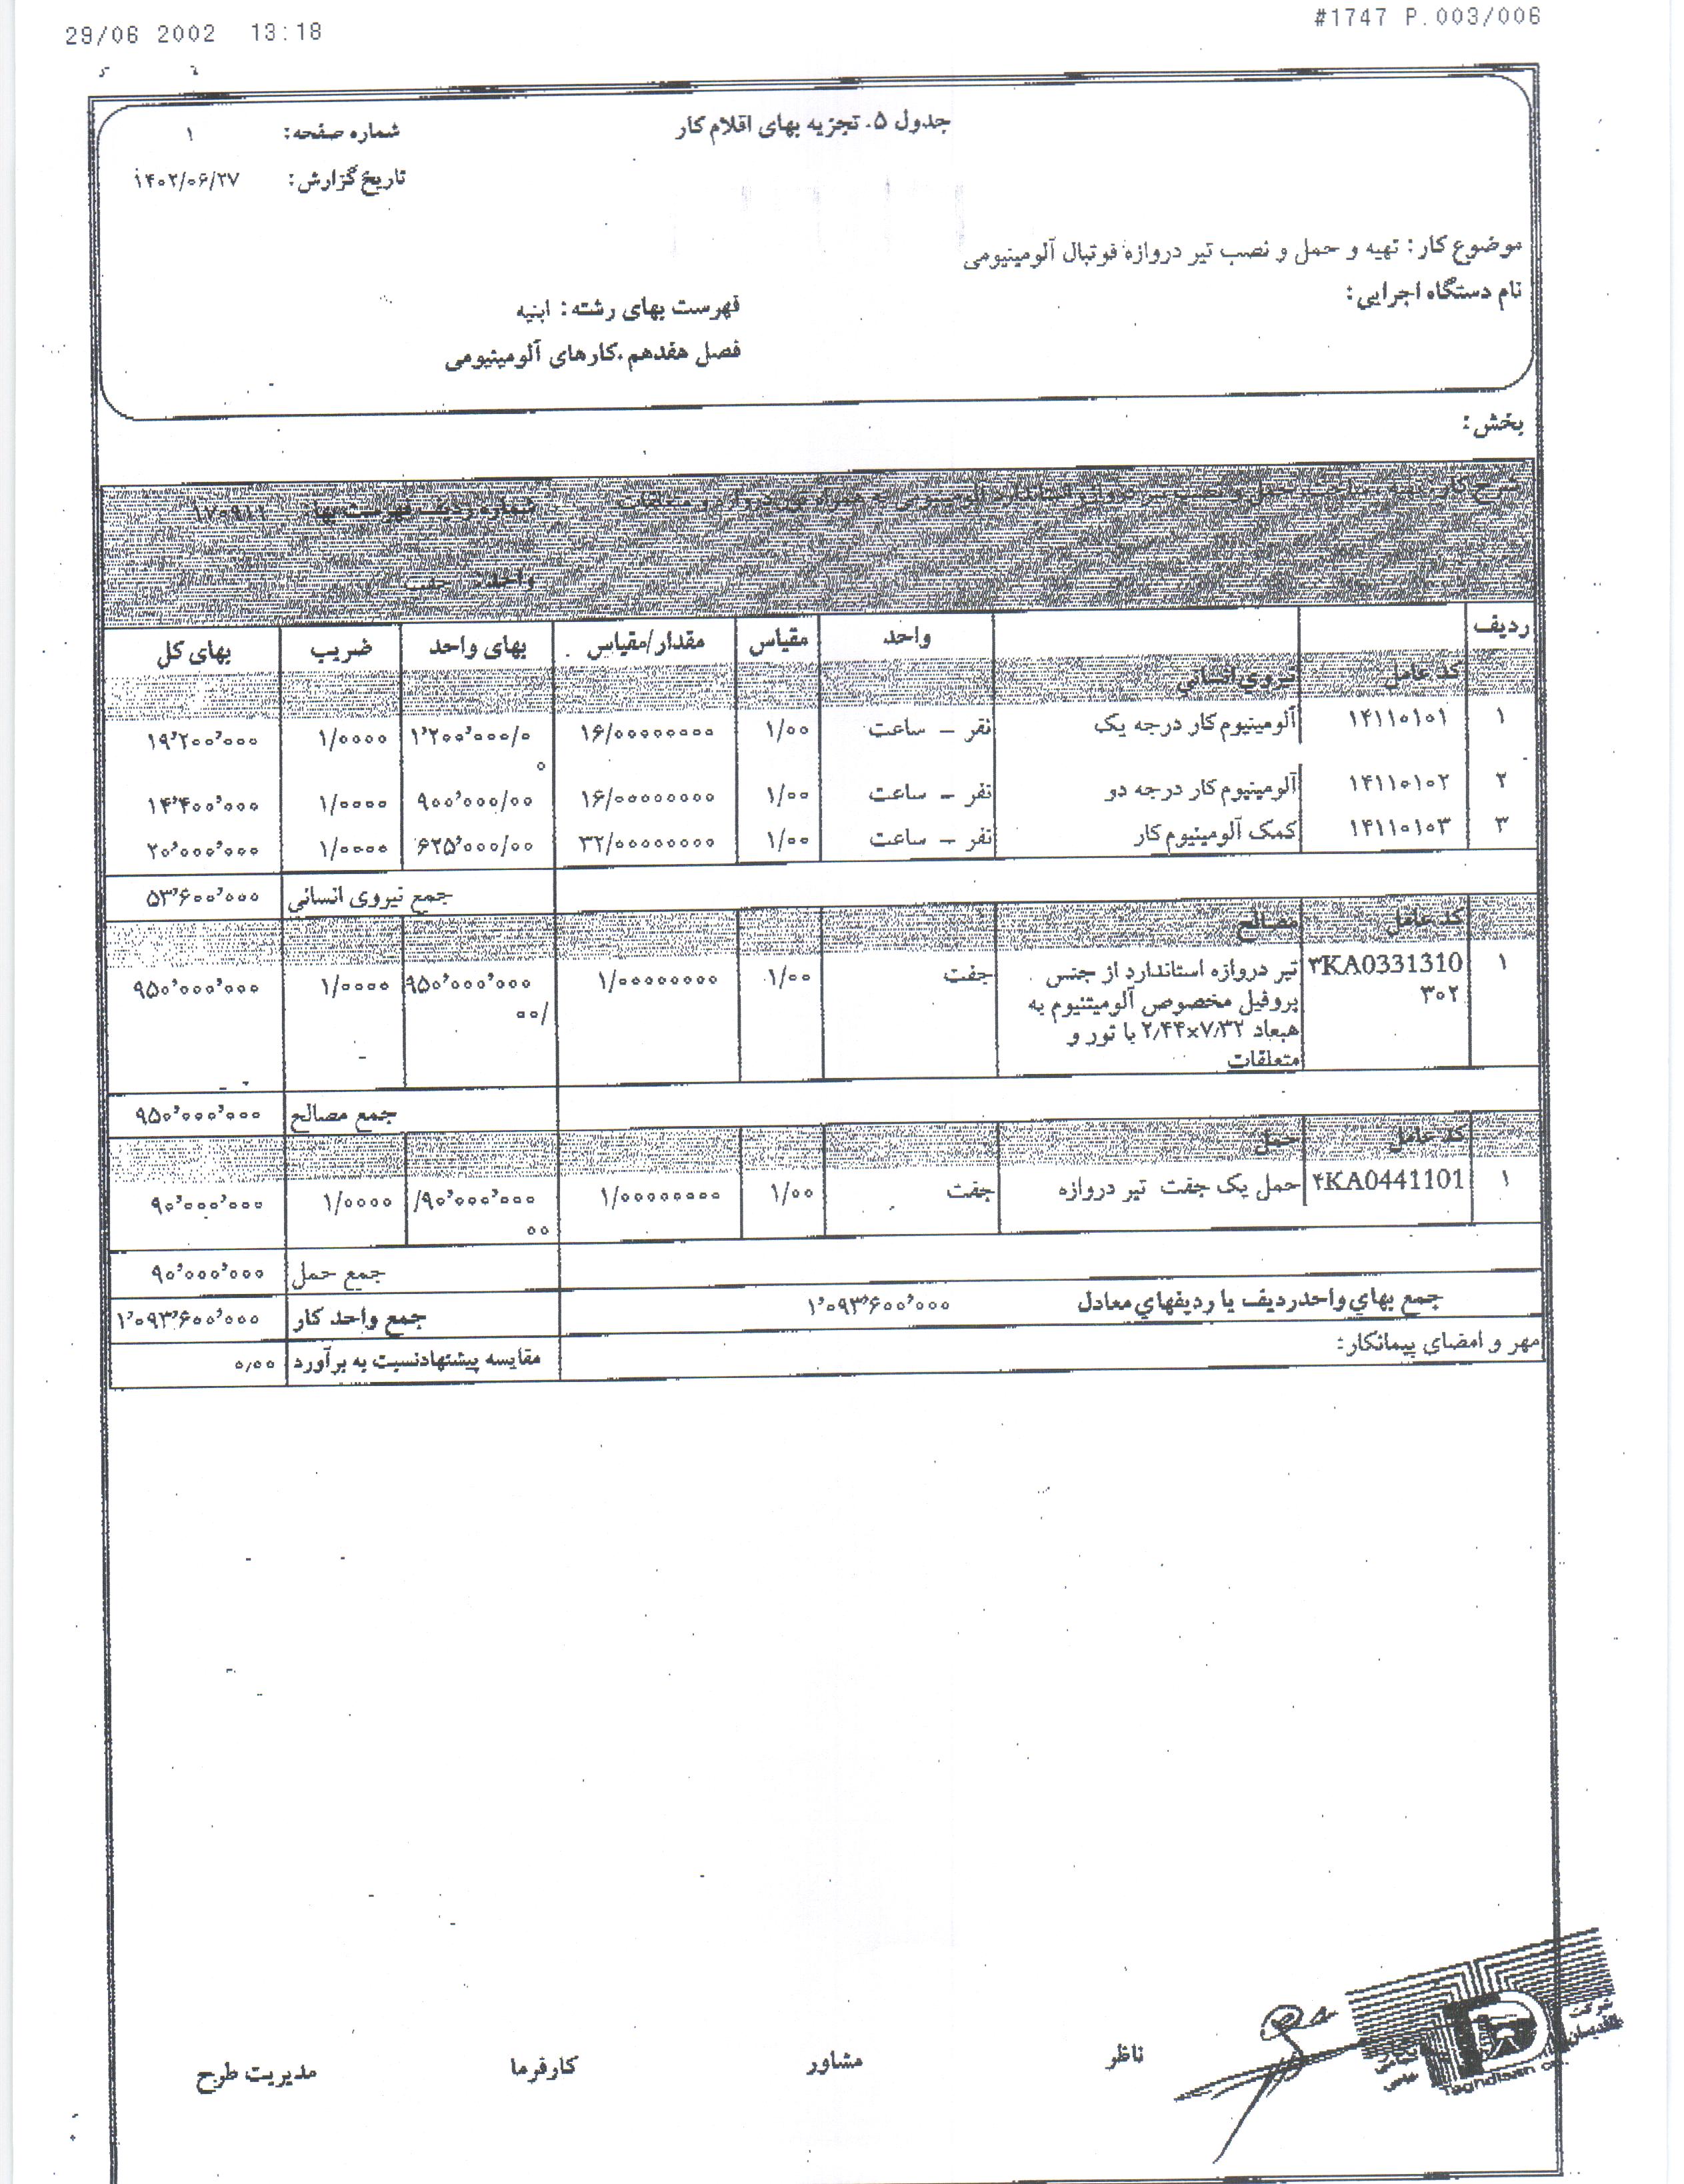 29/06 2002 13:18
#1747 P.003/006
جدول ۵. تجزیه بهای اقلام کار
شماره صفحه: ۱
تاریخ گزارش: ۱۴۰۲/۰۶/۲۷
موضوع کار: تهیه و حمل و نصب تیر دروازه فوتبال آلومینیومی
نام دستگاه اجرایی:
فهرست بهای رشته: ابنیه
فصل هفدهم .کارهای آلومینیومی
بخش:
شماره ردیف فهرست بها:
واحد: جفت
ردیف واحد مقیاس مقدار/مقیاس بهای واحد ضریب بهای کل
کد عامل نیروی انسانی
۱ ۱۴۱۱۰۱۰۱ آلومینیوم کار درجه یک نفر – ساعت ۱/۰۰ ۱۶/۰۰۰۰۰۰۰۰ ۱٬۲۰۰٬۰۰۰/۰ ۱/۰۰۰۰ ۱۹٬۲۰۰٬۰۰۰
۰
۲ ۱۴۱۱۰۱۰۲ آلومینیوم کار درجه دو نفر – ساعت ۱/۰۰ ۱۶/۰۰۰۰۰۰۰۰ ۹۰۰٬۰۰۰/۰۰ ۱/۰۰۰۰ ۱۴٬۴۰۰٬۰۰۰
۳ ۱۴۱۱۰۱۰۳ کمک آلومینیوم کار نفر – ساعت ۱/۰۰ ۳۲/۰۰۰۰۰۰۰۰ ۶۲۵٬۰۰۰/۰۰ ۱/۰۰۰۰ ۲۰٬۰۰۰٬۰۰۰
جمع نیروی انسانی ۵۳٬۶۰۰٬۰۰۰
کد عامل مصالح
۱ ۳KA0331310 تیر دروازه استاندارد از جنس جفت ۱/۰۰ ۱/۰۰۰۰۰۰۰۰ ۹۵۰٬۰۰۰٬۰۰۰ ۱/۰۰۰۰ ۹۵۰٬۰۰۰٬۰۰۰
۳۰۲ پروفیل مخصوص آلومیتنیوم به /۰۰
هبعاد ۲٫۴۴×۷٫۳۲ با تور و
متعلقات
جمع مصالح ۹۵۰٬۰۰۰٬۰۰۰
کد عامل حمل
۱ ۴KA0441101 حمل یک جفت تیر دروازه جفت ۱/۰۰ ۱/۰۰۰۰۰۰۰۰ ۹۰٬۰۰۰٬۰۰۰/ ۱/۰۰۰۰ ۹۰٬۰۰۰٬۰۰۰
۰۰
جمع حمل ۹۰٬۰۰۰٬۰۰۰
جمع بهاي واحدرديف يا رديفهاي معادل ۱٬۰۹۳٬۶۰۰٬۰۰۰ جمع واحد کار ۱٬۰۹۳٬۶۰۰٬۰۰۰
مهر و امضای پیمانکار: مقایسه پیشنهادنسبت به برآورد ۰٫۰۰
ناظر مشاور کارفرما مدیریت طرح
شرکت
تقدیسان
Taghdisan co.